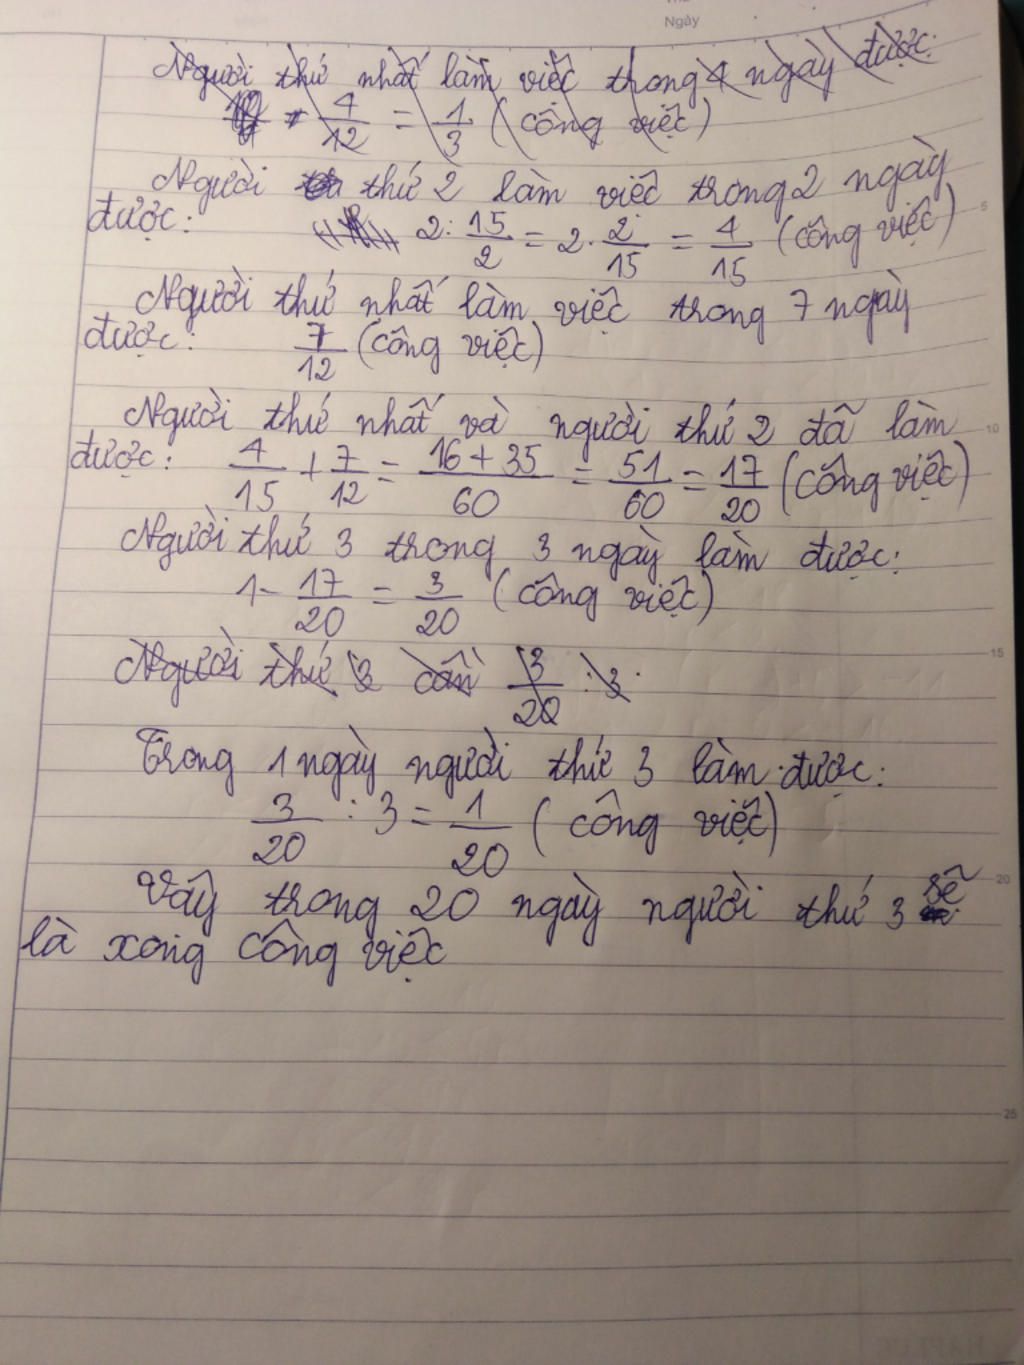 Ngày
Người thứ nhất làm việc trong 4 ngày được:
4/12 = 1/3 (công việc)
Người thứ 2 làm việc trong 2 ngày
được: 2: 15/2 = 2. 2/15 = 4/15 (công việc)
Người thứ nhất làm việc trong 7 ngày
được: 7/12 (công việc)
Người thứ nhất và người thứ 2 đã làm
được: 4/15 + 7/12 = 16 + 35/60 = 51/60 = 17/20 (công việc)
Người thứ 3 trong 3 ngày làm được:
1 - 17/20 = 3/20 (công việc)
Người thứ 3 cần 3/20 : 3
Trong 1 ngày người thứ 3 làm được:
3/20 : 3 = 1/20 (công việc)
Vậy trong 20 ngày người thứ 3 sẽ
là xong công việc
5
10
15
20
25